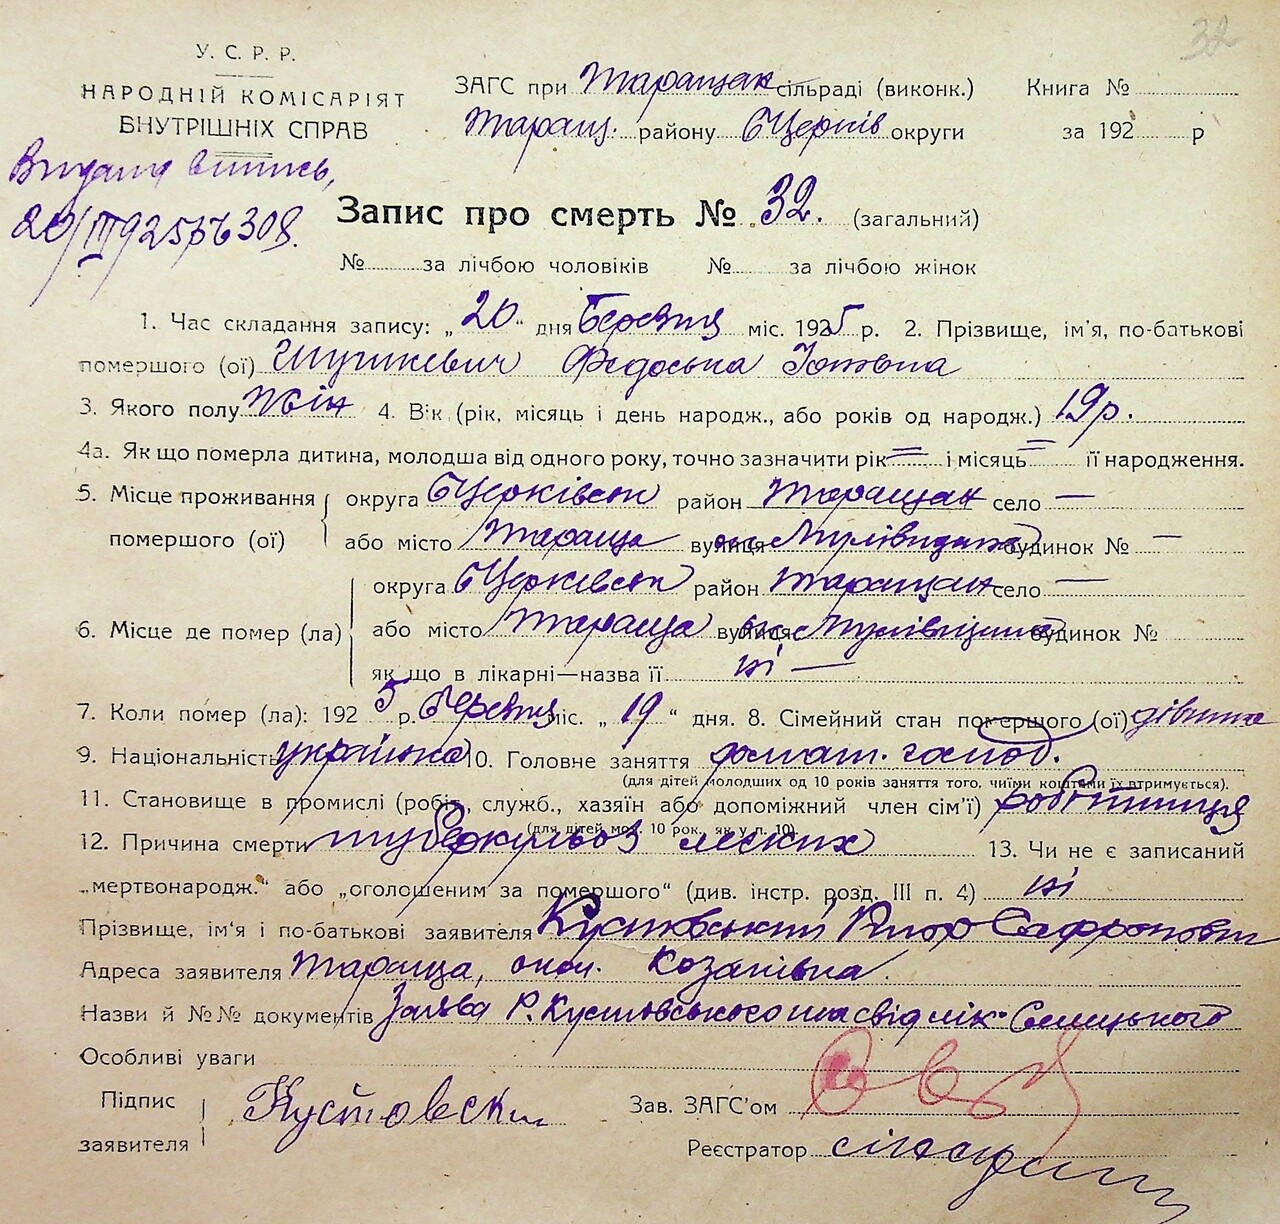 32
У. С. Р. Р.
НАРОДНІЙ КОМІСАРІЯТ
ВНУТРІШНІХ СПРАВ
ЗАГС при Таращан сільраді (виконк.)
Таращ. району БЦерків округи
Книга №
за 192 р
Видана випись,
20/III 925 р № 308.
Запис про смерть № 32. (загальний)
№ за лічбою чоловіків № за лічбою жінок
1. Час складання запису: „ 20 “ дня Березня міс. 1925 р. 2. Прізвище, ім'я, по-батькові
помершого (ої) Федоська
3. Якого полу жін 4. Вік (рік, місяць і день народж., або років од народж.) 19 р.
4а. Як що померла дитина, молодша від одного року, точно зазначити рік = і місяць = її народження.
5. Місце проживання помершого (ої)
округа БЦерківськ район Таращан село —
або місто Тараща вулиця будинок № —
6. Місце де помер (ла)
округа БЦерківськ район Таращан село —
або місто Тараща вулиця будинок №
як що в лікарні—назва її ні —
7. Коли помер (ла): 1925 р. Березня міс. „ 19 “ дня. 8. Сімейний стан помершого (ої) дівчина
9. Національність українка 10. Головне заняття домаш. господ.
(для дітей молодших од 10 років заняття того, чиїми коштами їх втримується).
11. Становище в промислі (робіт., служб., хазяїн або допоміжний член сім'ї) робітниця
(для дітей мол. 10 рок. як у п. 10).
12. Причина смерти туберкульоз легких 13. Чи не є записаний
„мертвонародж.“ або „оголошеним за помершого“ (див. інстр. розд. III п. 4) ні
Прізвище, ім'я і по-батькові заявителя Кустовський Сафронович
Адреса заявителя Тараща, окол. Козаківка.
Назви й №№ документів Заява Р. Кустовського та свід лік.
Особливі уваги
Підпис
заявителя
Кустовски
Зав. ЗАГС'ом
Реєстратор